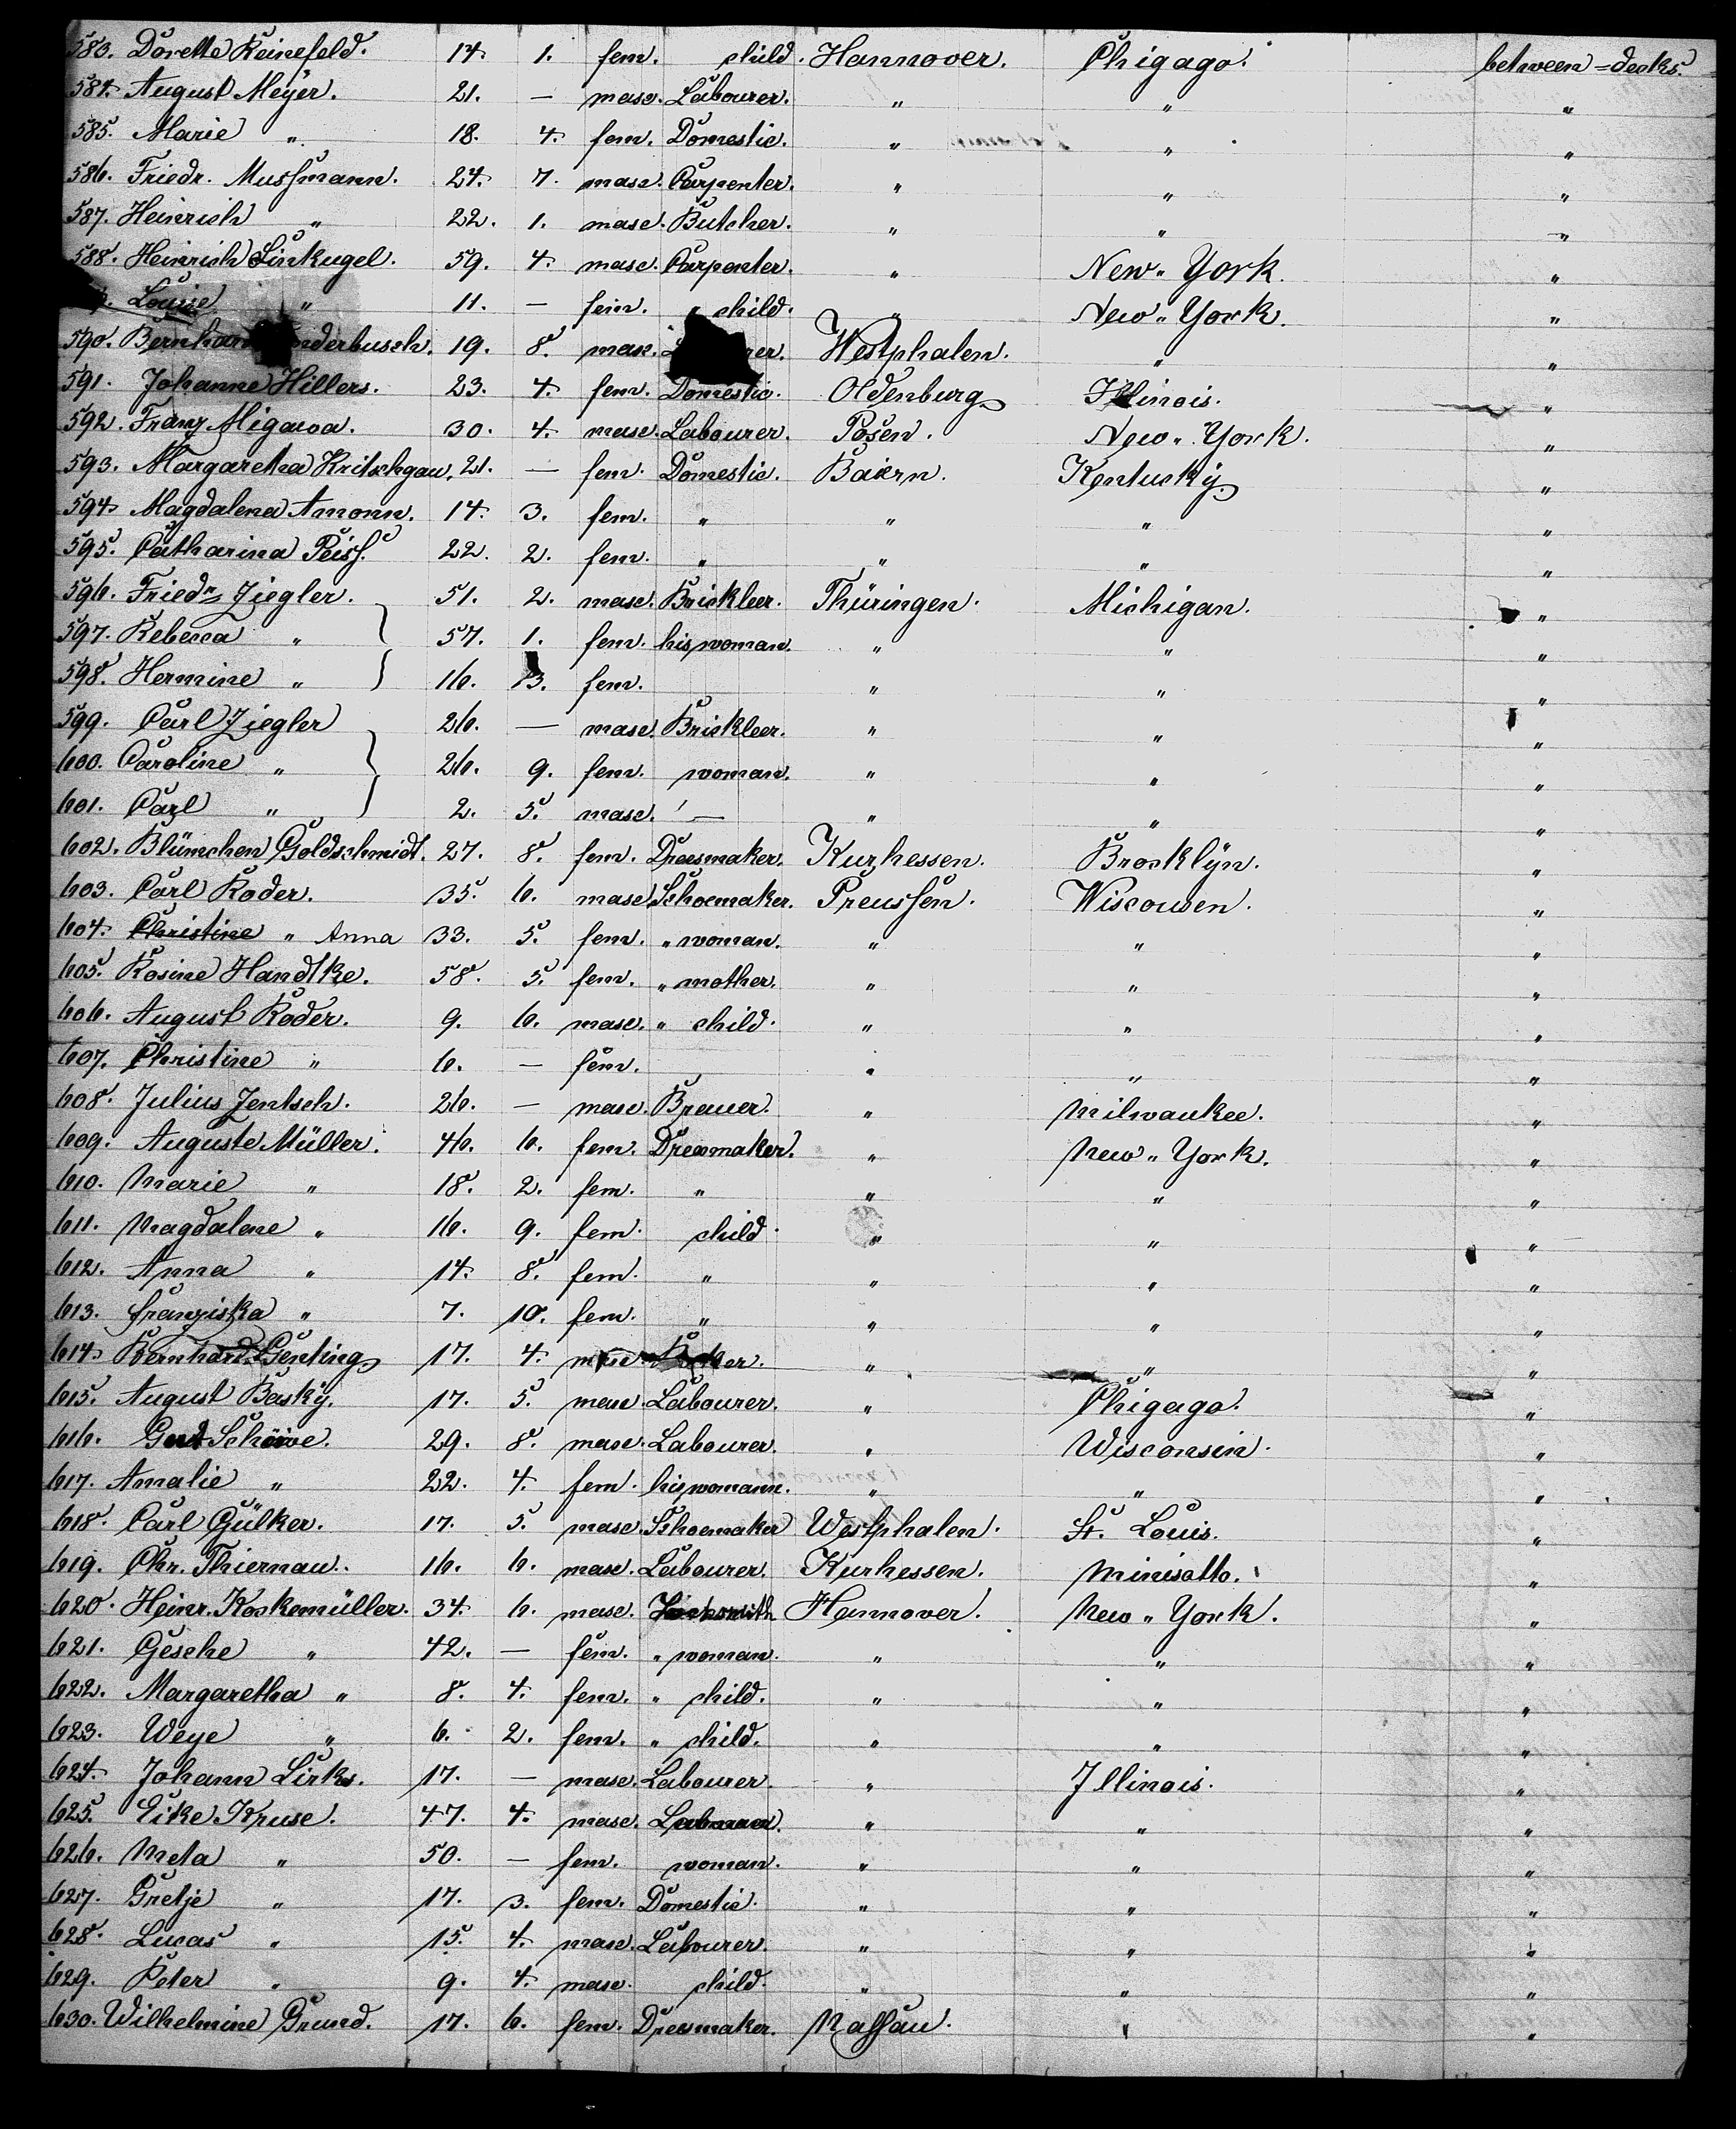 583. Dorette Reinefeld. 14. 1. fem. child. Hannover. Chigago. between=decks.
584. August Meÿer. 21. — masc. Labourer. " " "
585. Marie " 18. 4. fem. Domestic. " " "
586. Friedr. Mussmann. 24. 7. masc. Carpenter. " " "
587. Heinrich " 22. 1. masc. Butcher. " " "
588. Heinrich Linkugel. 59. 4. masc. Carpenter. " New-York. "
Louise " 11. — fem. " child. " New-York. "
590. 19. 8. masc. Westphalen. " "
591. Johanne Hillers. 23. 4. fem. Domestic. Oldenburg. Illinois. "
592. Franz Migawa. 30. 4. masc. Labourer. Posen. New-York. "
593. Margaretha Kritschgau. 21. — fem. Domestic. Baiern. Kentuckÿ. "
594. Magdalena Amonn. 14. 3. fem. " " " "
595. Catharina Peiss. 22. 2. fem. " " " "
596. Friedr. Ziegler. 51. 2. masc. Brickleer. Thüringen. Michigan. "
597. Rebecca " 57. 1. fem. his woman. " " "
598. Hermine " 16. 3. fem. " " "
599. Carl Ziegler 26. — masc. Brickleer. " " "
600. Caroline " 26. 9. fem. woman. " " "
601. Carl " 2. 5. masc. — " " "
602. Blümchen Goldschmidt. 27. 8. fem. Dresmaker. Kurhessen. Brocklÿn. "
603. Carl Roder. 35. 6. masc. Schoemaker. Preussen. Wisconsen. "
604. Christine " Anna 33. 5. fem. " woman. " " "
605. Rosine Handtke. 58. 5. fem. " mother. " " "
606. August Roder. 9. 6. masc. " child. " " "
607. Christine " 6. — fem. " " "
608. Julius Jentsch. 26. — masc. Brewer. " Milwaukee. "
609. Auguste Müller. 46. 6. fem. Dresmaker. " New-York. "
610. Marie " 18. 2. fem. " " " "
611. Magdalene " 16. 9. fem. child. " " "
612. Anna " 14. 8. fem. " " " "
613. Franziska " 7. 10. fem. " " " "
614. Bernhard Genting. 17. 4. masc. " " "
615. August Baskÿ. 17. 5. masc. Labourer. " Chigago. "
616. Schöwe. 29. 8. masc. Labourer. " Wisconsin. "
617. Amalie " 22. 4. fem. his womann. " " "
618. Carl Gülker. 17. 5. masc. Schoemaker Westphalen. St. Louis. "
619. Chr. Thiernau. 16. 6. masc. Labourer. Kurhessen. Minisotto. "
620. Heinr. Kockemüller. 34. 6. masc. Locksmith Hannover. New-York. "
621. Gesche " 42. — fem. " woman. " " "
622. Margaretha " 8. 4. fem. " child. " " "
623. Weye " 6. 2. fem. " child. " " "
624. Johann Lirks. 17. — masc. Labourer. " Illinois. "
625. Eike Kruse. 47. 4. masc. Labourer. " " "
626. Meta " 50. — fem. woman. " " "
627. Gretje " 17. 3. fem. Domestic. " " "
628. Lucas " 15. 4. masc. Labourer. " " "
629. Peter " 9. 4. masc. child. " " "
630. Wilhelmine Grund. 17. 6. fem. Dresmaker. Nassau. " "